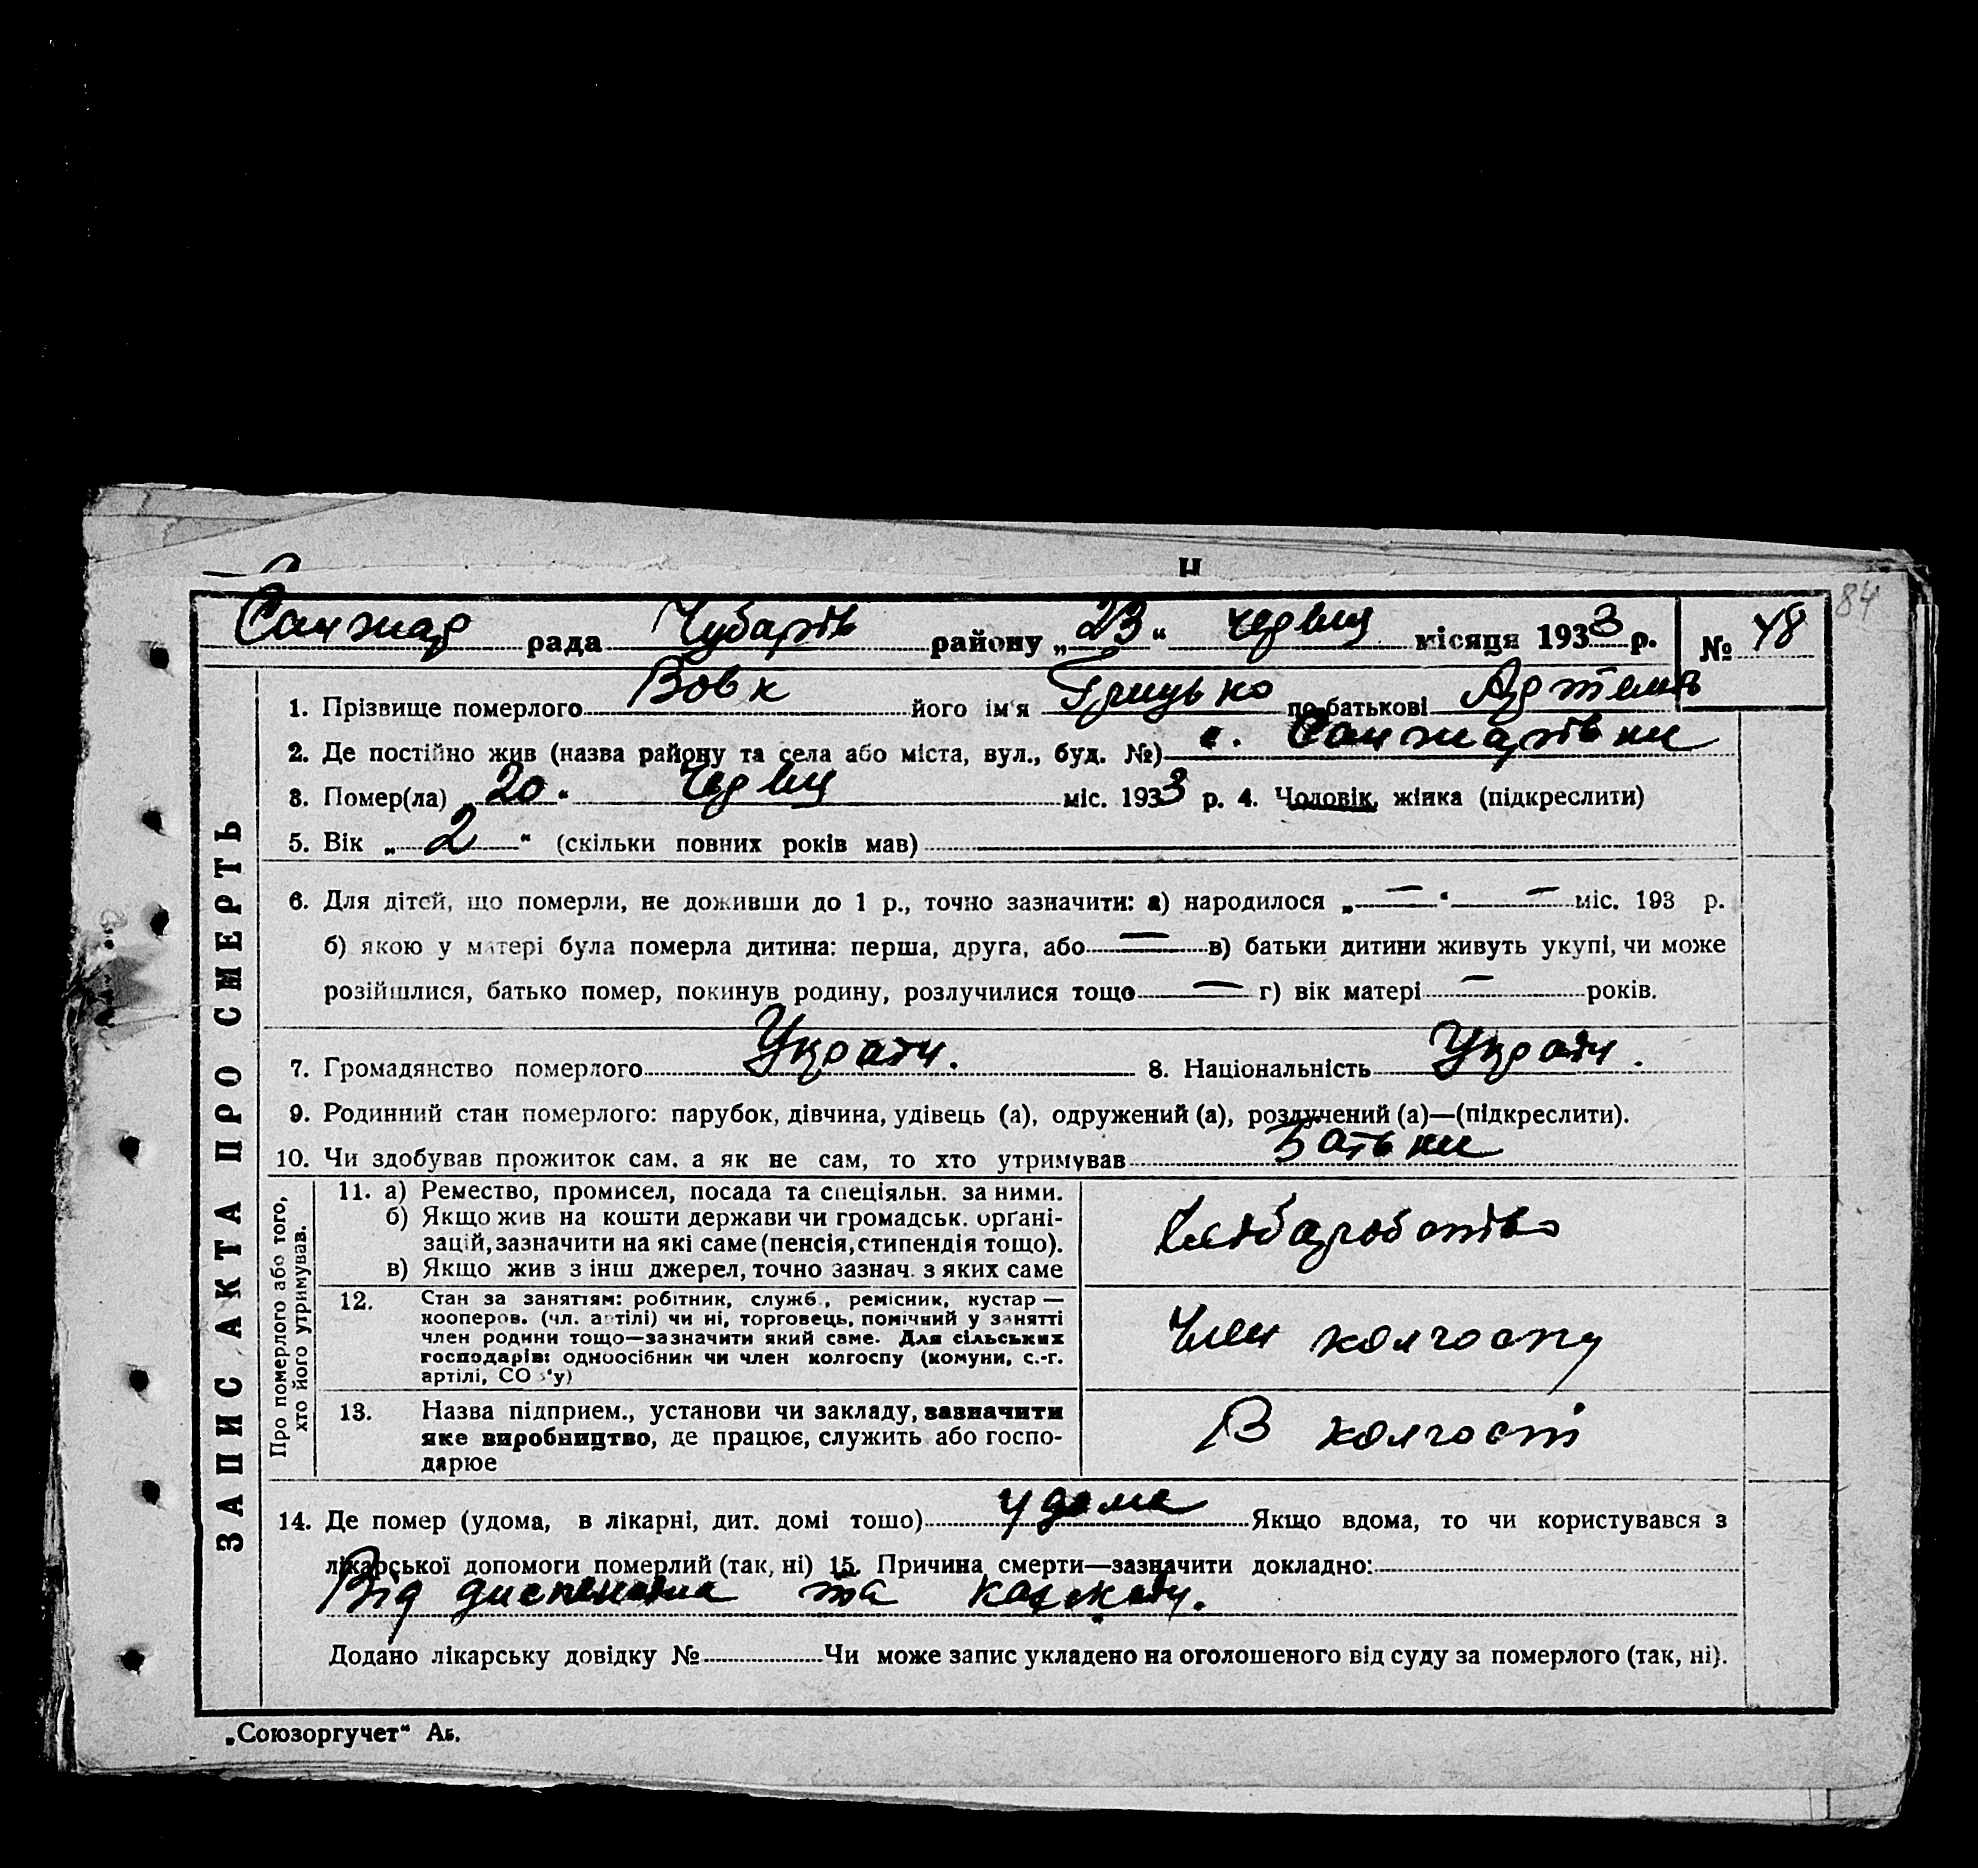 84
Санжар рада Чубарів району „23“ червця місяця 1933 р. № 48
1. Прізвище померлого Вовк його ім'я Грицько по батькові Артемів
2. Де постійно жив (назва району та села або міста, вул., буд. №) с. Санжарівки
3. Помер(ла) „20“ червця міс. 1933 р. 4. Чоловік, жінка (підкреслити)
5. Вік „2“ (скільки повних років мав)
6. Для дітей, що померли, не доживши до 1 р., точно зазначити: а) народилося „—“ — міс. 193 р.
б) якою у матері була померла дитина: перша, друга, або — в) батьки дитини живуть укупі, чи може
розійшлися, батько помер, покинув родину, розлучилися тощо — г) вік матері — років.
7. Громадянство померлого Украін. 8. Національність Украін.
9. Родинний стан померлого: парубок, дівчина, удівець (а), одружений (а), розлучений (а)—(підкреслити).
10. Чи здобував прожиток сам, а як не сам, то хто утримував Батьки
ЗАПИС АКТА ПРО СМЕРТЬ
Про померлого або того,
хто його утримував.
11. а) Ремество, промисел, посада та спеціяльн. за ними.
б) Якщо жив на кошти держави чи громадськ. орґані-
зацій, зазначити на які саме (пенсія, стипендія тощо).
в) Якщо жив з інш джерел, точно зазнач. з яких саме
Хлібаробство
12. Стан за заняттям: робітник, служб., ремісник, кустар—
кооперов. (чл. артілі) чи ні, торговець, помічний у занятті
член родини тощо—зазначити який саме. Для сільських
господарів: одноосібник чи член колгоспу (комуни, с.-г.
артілі, СО'у)
Член колгоспу
13. Назва підприєм., установи чи закладу, зазначити
яке виробництво, де працює, служить або госпо-
дарює
В колгоспі
14. Де помер (удома, в лікарні, дит. домі тощо) удома Якщо вдома, то чи користувався з
лікарської допомоги померлий (так, ні) 15. Причина смерти—зазначити докладно:
Від та
Додано лікарську довідку № Чи може запис укладено на оголошеного від суду за померлого (так, ні).
„Союзоргучет“ Аб.